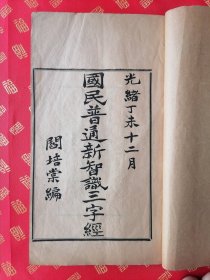 光緒丁未十二月
國民普通新智識三字經
閻培棠編